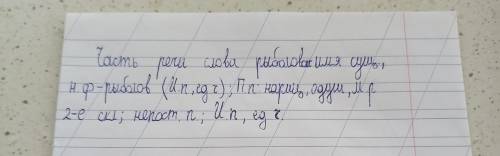 Часть речи слова рыболов-имя сущ.,
н.ф-рыболов (И.п, ед ч); Пп: нариц., одуш, м р
2-е скл; непост. п; И.п, ед ч.